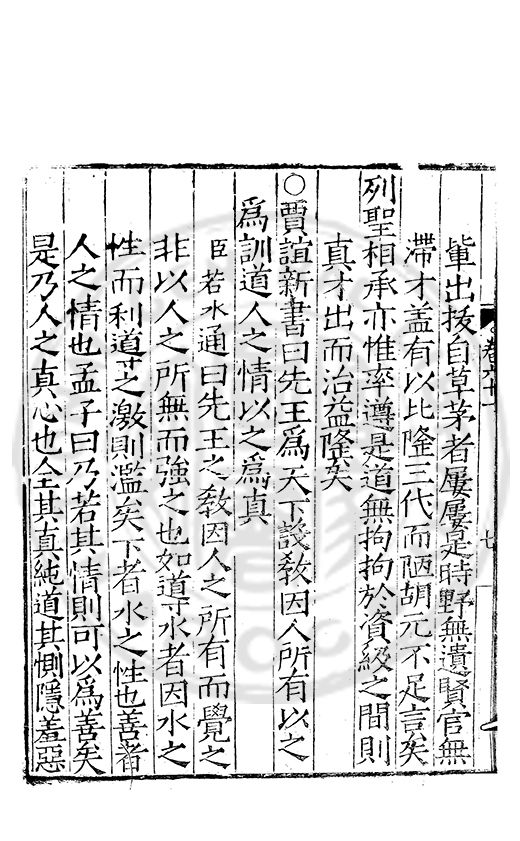 軰出拔自草茅者屢屢是時野無遺賢官無
滯才盖有以比隆三代而陋胡元不足言矣
列聖相承亦惟率遵是道無拘拘於資級之間則
真才出而治益隆矣
○賈誼新書曰先王爲天下設敎因人所有以之
爲訓道人之情以之爲真
臣若水通曰先王之敎因人之所有而覺之
非以人之所無而強之也如道水者因水之
性而利道之激則濫矣下者水之性也善者
人之情也孟子曰乃若其情則可以爲善矣
是乃人之真心也全其真純道其惻隱羞惡